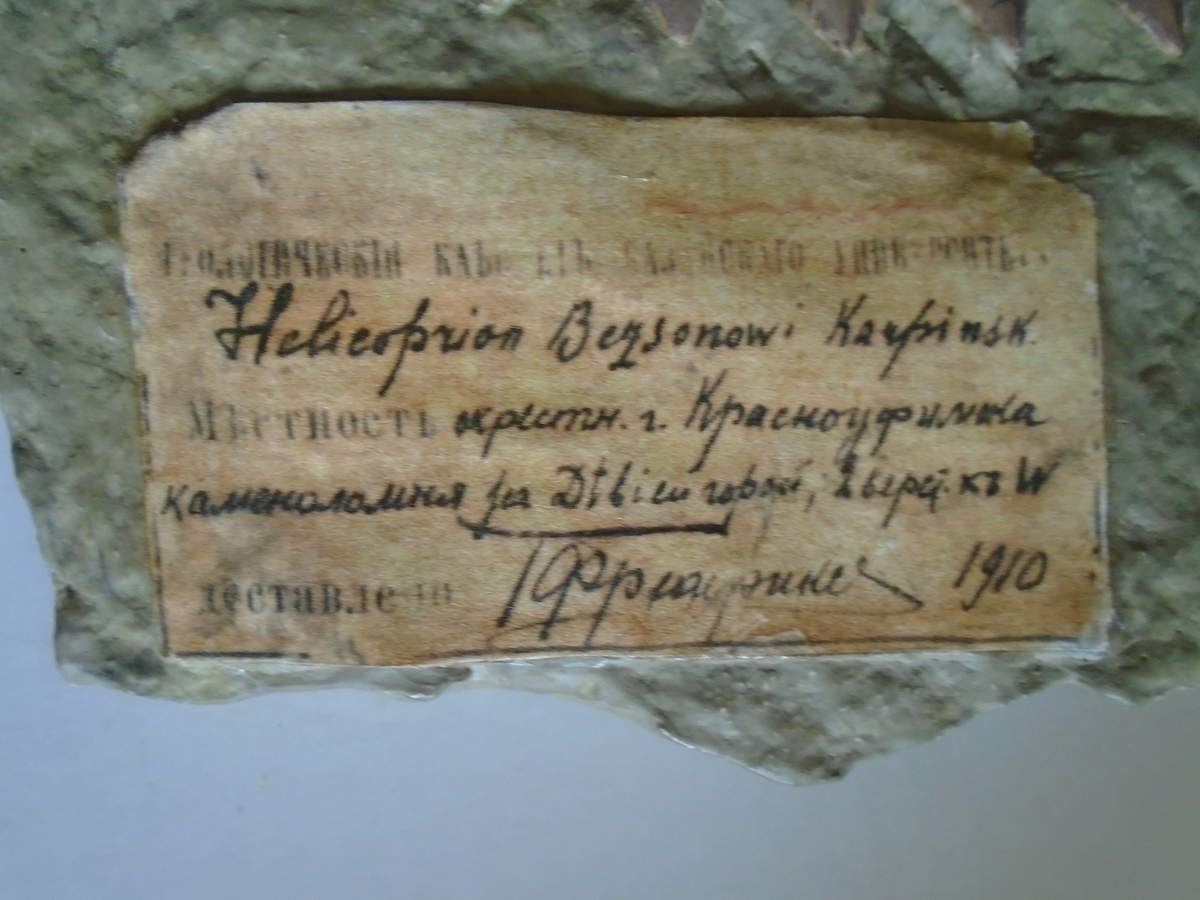 Геологическій Кабинетъ Казанскаго Университ..
Helicoprion Bezsonowi Karpinsk.
Мѣстность окрестн. г. Красноуфимска
каменоломня за Дѣвіей горой, 2 верс. къ W
доставлено 1910